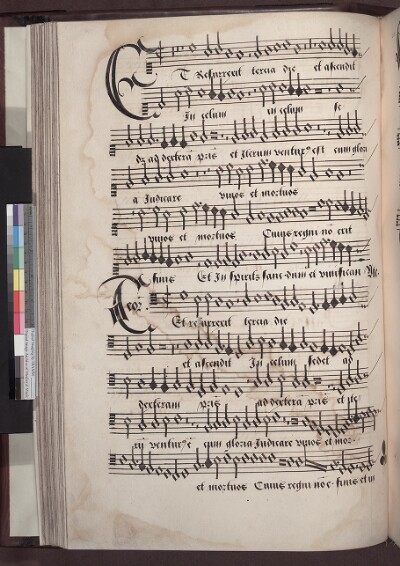 Et Resurrexit tercia die et ascendit
In celum in celum se
det ad dextera pris et Iterum ventur9 est cum glori
a Iudicare vivos et mortuos
vivos et mortuos Cuius regni nō erit
finis Et In spiritū sanc dnm et vivifican
Teor:
Et resurrexit tercia die
et ascendit In celum sedet ad
dexteram pris ad dextera pris et ite
rū ventur9 ē cum gloria Iudicare vivos et mor
et mortuos Cuius regni nō e finis et in